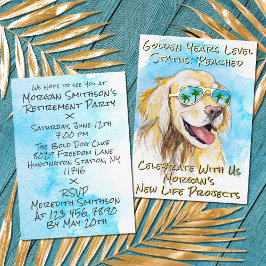 We Hope to See You at
Morgan Smithson's
Retirement Party
X
Saturday, June 12th
7:00 PM
The Bold Dog Club
8029 Freedom Lane
Huntington Station, NY
11746
X
RSVP
Meredith Smithson
At 123 456 7890
By May 20th
Golden Years Level
Status: Reached
Celebrate With Us
Morgan's
New Life Projects